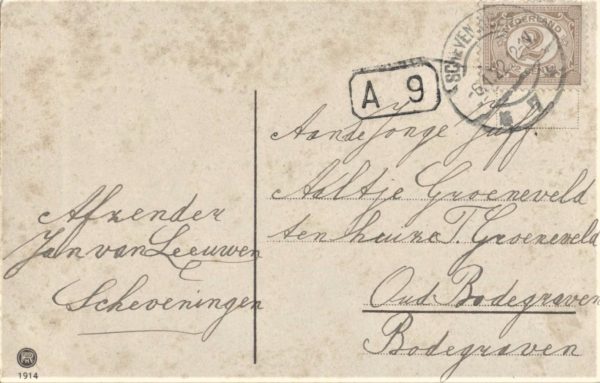 SCHEVEN
NEDERLAND
2
A 9
Aan de Jonge Juff.
Aaltje Groeneveld
ten huize T. Groeneveld
Oud Bodegraven
Bodegraven
Afzender
Jan van Leeuwen
Scheveningen
1914